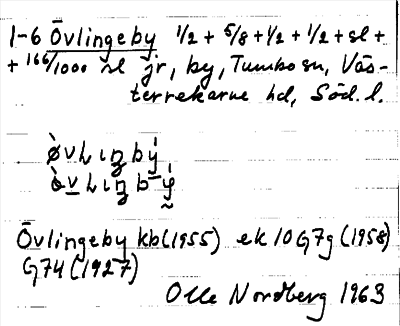 1-6 Övlingeby 1/2 + 5/8 + 1/2 + 1/2 + sl +
+ 166/1000 sl jr, by, Tumbo sn, Väs-
terrekarne hd, Söd. l.
Övlingeby kb (1955) ek 10G7g (1958)
G74 (1927)
Olle Nordberg 1963